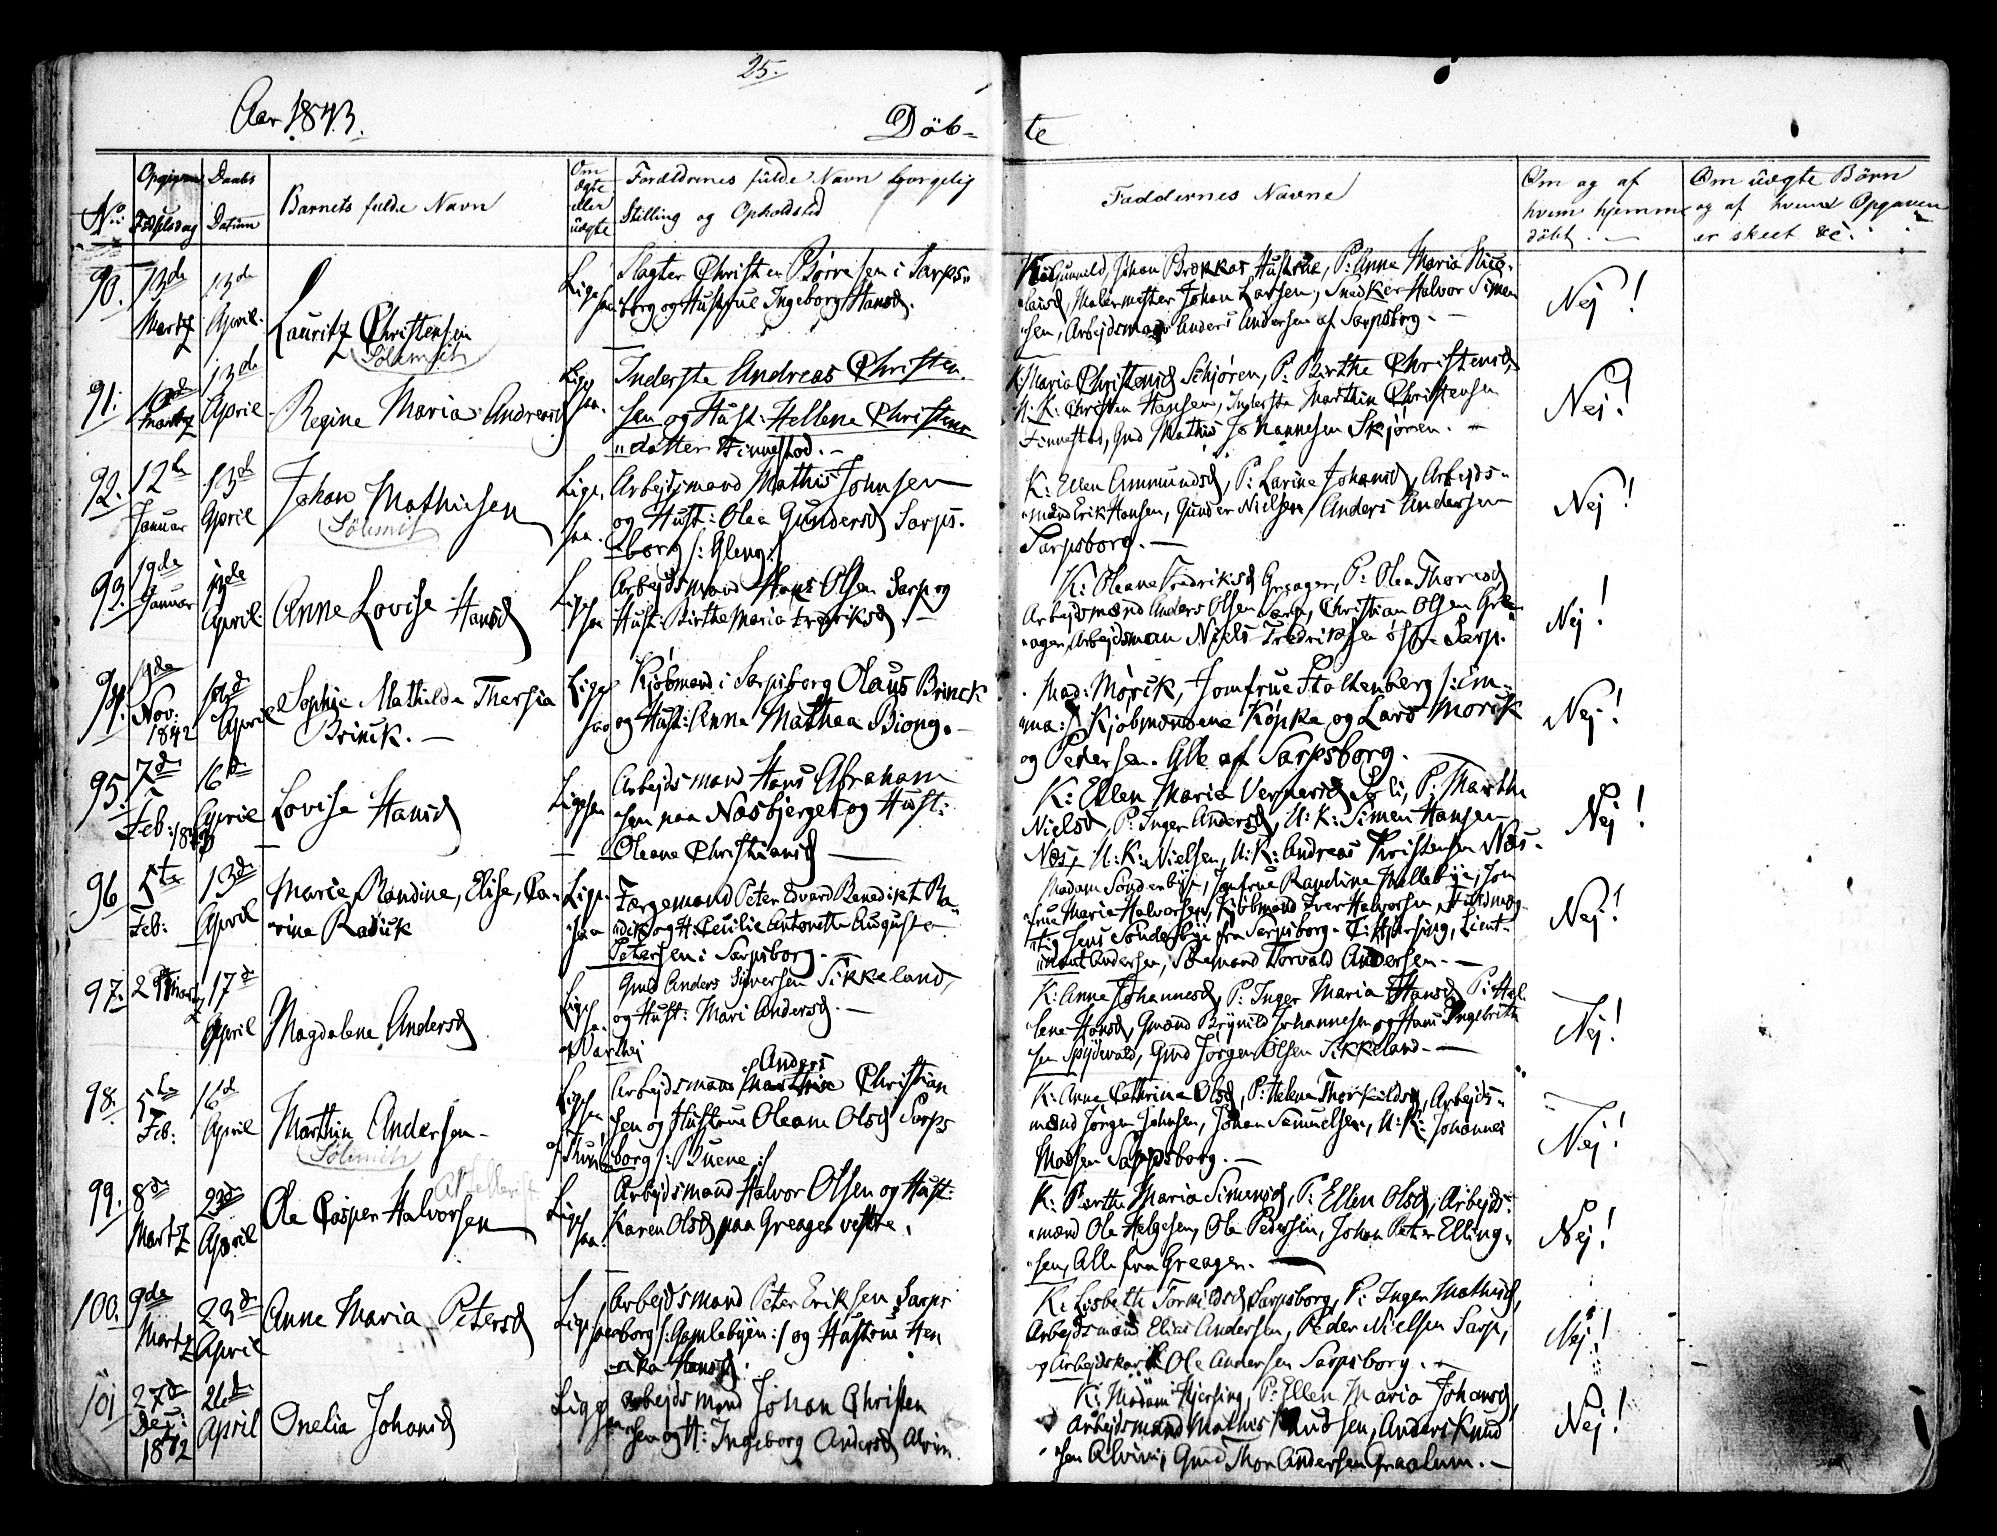 25.
Aar 1843.
Döb-
te
No
Opgiven
Fødselsdag
Daabs
Datum
Barnets fulde Navn
Om
ægte
eller
uægte
Forældrenes fulde Navn borgelig
Stilling og Opholdsted
Faddernes Navne
Om og af
hvem hjemme
döbt.
Om uægte Börn
og af hvem Opgaven
er skeet &c:
90.
13de
Martz
13de
April.
Lauritz Christensen
Ligesaa
Slagter Christen Börresen i Sarps-
borg og Hustrue Ingeborg Hansd.
Johan Brekkes Hustrue, P: Anne Maria Nico-
laisd, Malermester Johan Larsen, Snedker Halvor Simen
sen, Arbejdsmand Anders Andersen af Sarpsborg. -
Nej!
91.
Martz
13de
April
Regine Maria Andreasd
Ligesaa.
Inderste Andreas Christen-
sen og Hust: Hellene Christens
datter Finnestad. -
K: Maria Christensd Schjören, P: Birthe Christensd,
U: K: Christen Hansen, Inderste Marthin Christensen
Finnestad, Gmd Mathis Johannesen Skjören. -
Nej!
92.
12te
Januar
13de
April
Johan Mathiesen
Ligesaa.
Arbejdsmand Mathis Johnsen
og Hust: Olea Gundersd Sarps-
borg /: Gleng :/
K: Ellen Ammundsd, P: Larine Johansd, Arbejds-
mænd Erik Hansen, Gunder Nielsen, Anders Andersen
Sarpsborg. -
Nej!
93.
19de
Januar
April
Anne Lovise Hansd
Ligesaa
Arbejdsmand Hans Olsen Sarp og
Hust: Birthe Maria Fredriksd. -
K: Oleane Fredriksd Greager, P: Olea Thoresd
Arbejdsmænd Anders Olsen Sarp, Christian Olsen Gre-
ager, Arbejdsman Niels Fredriksen östre Sarp.
Nej!
94.
Nov:
1842
April
Sophie Mathilde Thersia
Brinck. -
Ligesaa
Kjöbmand i Sarpsborg Olaus Brinck
og Hust: Anne Mathea Biong. -
Mad: Mörck, Jomfrue Stoltenberg /: Em-
ma :/ Kjøbmændene Köpke og Lars Mörck
og Pedersen. Alle af Sarpsborg.
Nej!
95.
7de
Feb: 1843
16de
April
Lovise Hansd
Ligesaa
Arbejdsmand Hans Abraham
sen paa Næsbjerget og Hust:
Oleane Christiansd
K: Ellen Maria Vernersd Soli, P: Marthe
Nielsd, P: Inger Andersd, U: K: Simen Hansen
Næs, U: K: Nielsen, U: K: Andreas Christensen Næs-
Nej!
96
5te
Feb:
13de
April
Marie, Randine, Elise, Ca-
rine Radick
Ligesaa
Færgemand Peter Edvard Benedikt Ra-
dik og H: Cecilie Antonette Auguste
Petersen i Sarpsborg. -
Madam Sönderbye, Jomfrue Randine Hallebye, Jom
frue Maria Halvorsen, Kjöbmand Iver Halvorsen, Fuldmæg-
tig Jens Sönderbye fra Sarpsborg. T: Hjersing, Lieut-
nant Andersen, Sömand Torvald Andersen. -
Nej!
97.
Martz
17de
April
Magdalene Andersd
Ligesaa.
af Varthej
Gmd Anders Syversen Sikkeland,
og Hust: Mari Andersd. -
K: Anne Johannesd, P: Inger Maria Hansd, P: Hel-
lene Hansd, Gmænd Brynild Johannesen og Hans Ingebrith
sen Spydevold, Gmd Jörgen Olsen Sikkeland. -
Nej!
98.
5te
Feb:
16de
April
Marthin Andersen -
Ligesaa
Anders
Arbejdsmand Christian
sen og Hustrue Oleane Olsd Sarps
borg /: Buene :/
K: Anne Cathrine Olsd, P: Helene Thorkildsd, Arbejds-
mænd Jörgen Johnsen, Johan Samuelsen, U: K: Johannes
Madsen Sarpsborg. -
Nej!
99.
8de
Martz
23de
April
Ole Casper Halvorsen
Ligesaa.
Arbejdsmand Halvor Olsen og Hust:
Karen Olsd paa Greager vestre.
K: Berthe Maria Simensd, P: Ellen Olsd, Arbejds-
mænd Ole Helgesen, Ole Pedersen, Johan Peter Elling-
sen, Alle fra Greager. -
Nej!
100.
9de
Martz
23de
April
Anne Maria Petersd
Ligesaa
Arbejdsmand Peter Eriksen Sarps
borg /: Gamlebyen :/ og Hustrue Hen
rika Hansd.
K: Lisbeth Torkildsd Sarpsborg, P: Inger Mathisd,
Arbejdsmænd Elias Andersen, Peder Nielsen Sarp,
og Arbejdskarl Ole Andersen Sarpsborg. -
Nej!
101
27de
Dec:
1842
26de
April
Onelia Johansd
Ligesaa
Arbejdsmand Johan Christen
sen og H: Ingeborg Andersd Alvim.
K: Madam Hjersing, P: Ellen Maria Johansd,
Arbejdsmænd Mathis Knudsen, Anders Knud
sen Alvim, Gmd Thor Andersen Graalum. -
Nej!